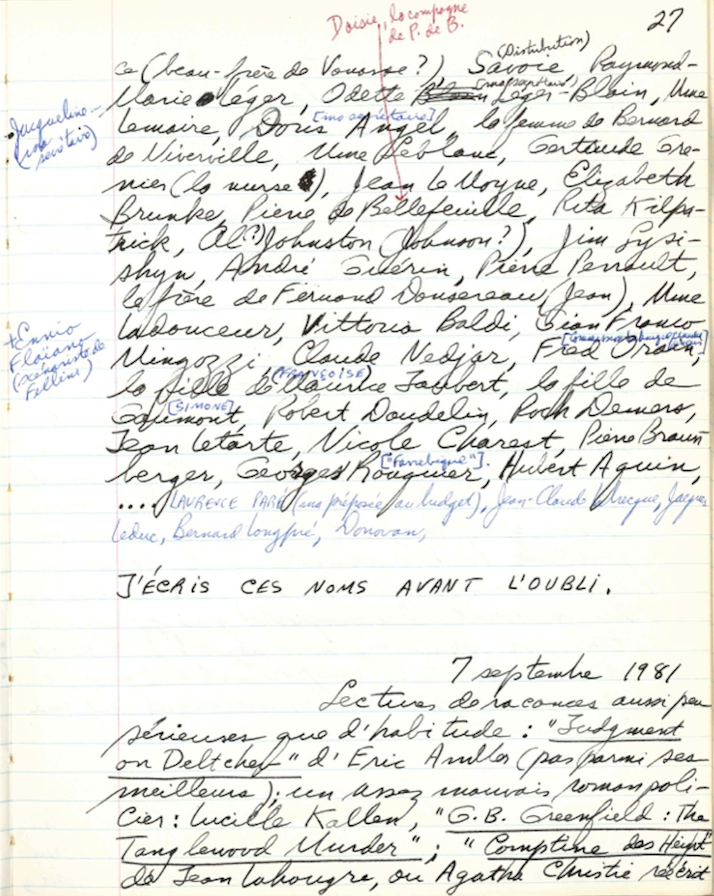 Daisie, la compagne
de P. de B.
27
(Distribution)
ce (beau-frère de Vanasse?) Savoie Raymond-
Marie Léger, Odette Léger-Blain, Mme
Jacqueline...
(ma
secrétaire)
Lemaire, [ma secrétaire] Doris Angel, la femme de Bernard
de Viverville, Mme Leblanc, Gertrude Gre-
nier (la nurse), Jean Le Moyne, Elizabeth
Brunke, Pierre de Bellefeuille, Rita Kilpa-
trick, Al(?) Johnston (Johnson?), Jim Lysi-
shyn, André Guérin, Pierre Perrault,
le frère de Fernand Dansereau (Jean), Mme
Ladouceur, Vittorio Baldi, Gian Franco
+ Ennio
Flaiano
(scénariste de
Fellini)
Mingozzi, Claude Nedjar, Fred Orain,
la fille de Maurice Jaubert, (FRANÇOISE) la fille de
Gaumont, [SIMONE] Robert Daudelin, Rock Demers,
Jean Letarte, Nicole Charest, Pierre Braun
berger, Georges Rouquier, ["Farrebique"]. Hubert Aquin,
.... LAURENCE PARÉ (ma préposée au budget), Jean-Claude Labrecque, Jacques
Leduc, Bernard Longpré, Donovan,
J'ÉCRIS CES NOMS AVANT L'OUBLI.
7 septembre 1981
Lectures de vacances aussi peu
sérieuses que d'habitude : "Judgment
on Deltchef" d'Eric Ambler (pas parmi ses
meilleurs); un assez mauvais roman poli-
cier : Lucille Kallen, "G.B. Greenfield : The
Tanglewood Murder"; "Comptine des Height"
de Jean Lahougue, ou Agatha Christie réécrit